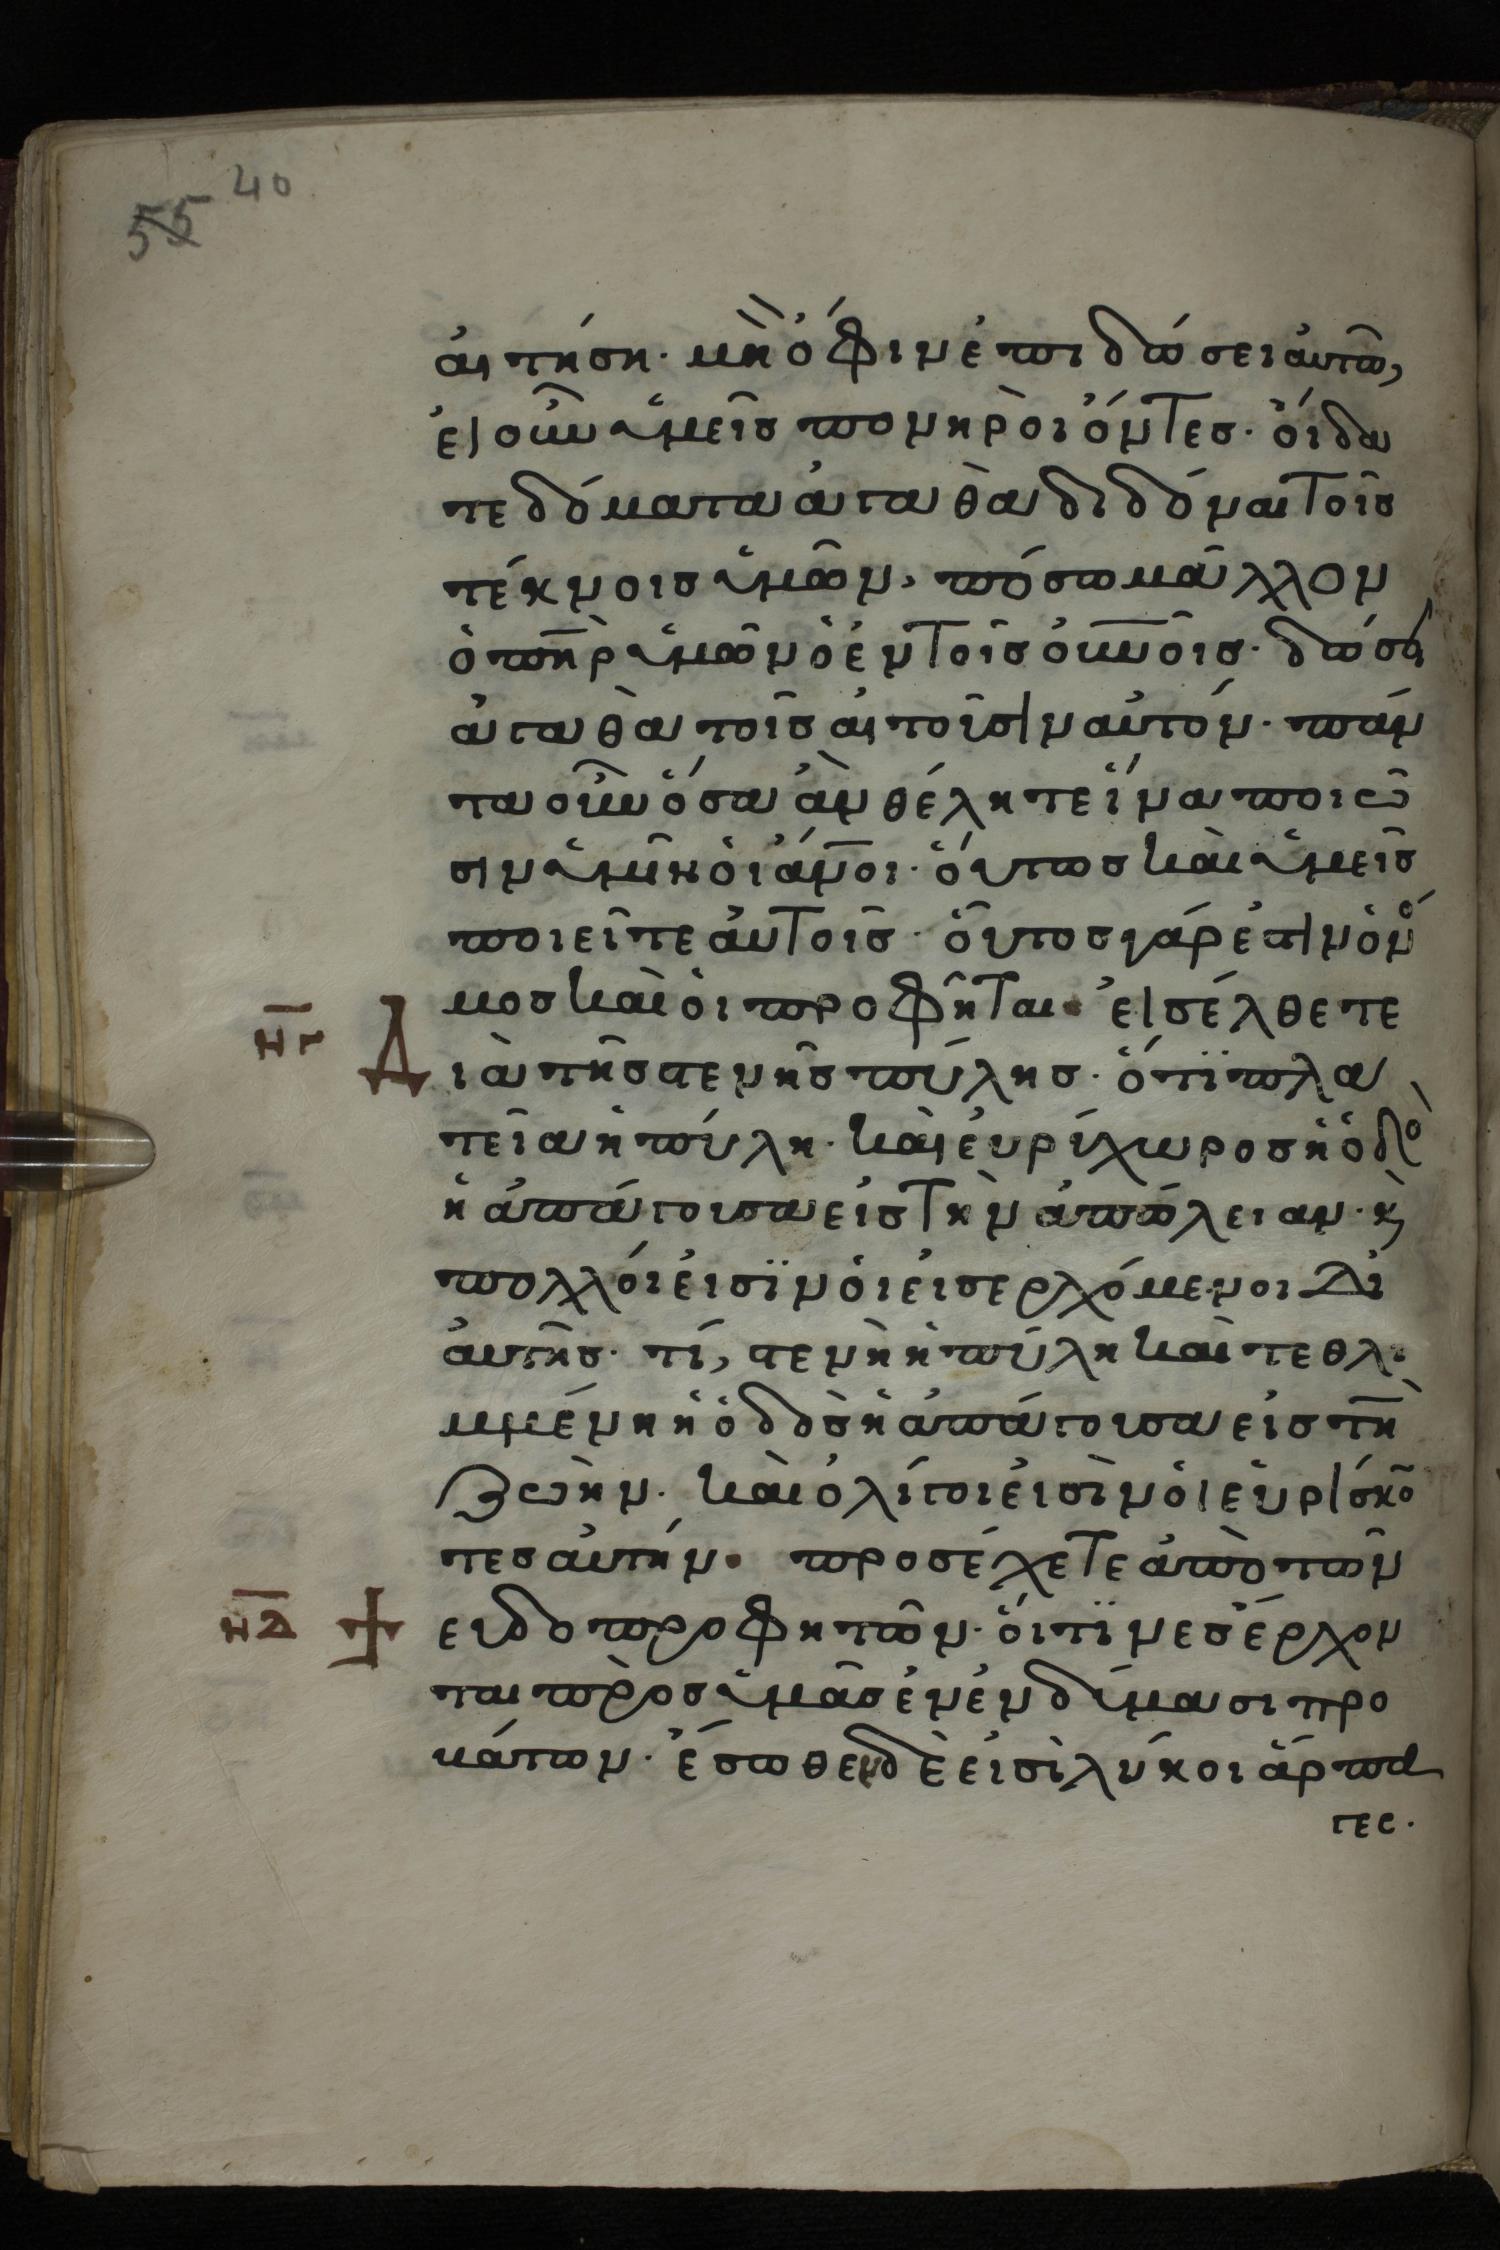 40
55
ἀιτήση· μὴ ὄφιν ἐπιδώσει ἀυτῶ,
ἐι οῦν ὑμεῖς πονηροὶ ὄντες· ὄιδα
τε δόματα ἀγαθὰ διδόναι τοῖς
τέκνοις ὑμῶν, πόσω μᾶλλον
ὁ π̅η̅ρ ὑμῶν ὁ ἐν τοῖς ο̅υ̅ν̅οῖς· δώσει
ἀγαθὰ τοῖς ἀιτοῦσιν αὐτόν· πάν
τα οὖν ὅσα ἂν θέλητε ἵνα ποιῶ
σιν ὑμῖν ὁι ἄ̅ν̅οι· ὅυτως καὶ ὑμεῖς
ποιεῖτε ἀυτοῖς· ὅυτος γάρ ἐστιν ὁ νό
μος καὶ ὁι προφῆται· ἐισέλθετε
ξγ Διὰ τῆς στενῆς πύλης· ὅτϊ πλα
τεῖα ἡ πύλη· καὶ ἐυρύχωρος ἡ ὁδὸ
ἡ ἀπάγουσα εἰς τὴν ἀπώλειαν· κ
πολλόι ἐισϊν ὁι ἐισερχόμενοι δι
ἀυτῆς· τί, στενὴ ἡ πύλη καὶ τεθλι
μμένη ἡ ὁδὸς ἡ ἀπάγουσα εἰς τὴ
ζωὴν· καὶ ὀλίγοι ἐισὶν ὁι ἑυρίσκο
τες ἀυτήν· προσέχετε ἀπὸ τῶν
ξδ ψευδοπροφητῶν· ὅιτϊνες ἔρχον
ται πρὸς ὑμᾶς ἐν ἐνδύμασι προ
κάτων· ἔσωθεν δὲ ἐισὶ λύκοι ἅρπα
γες·